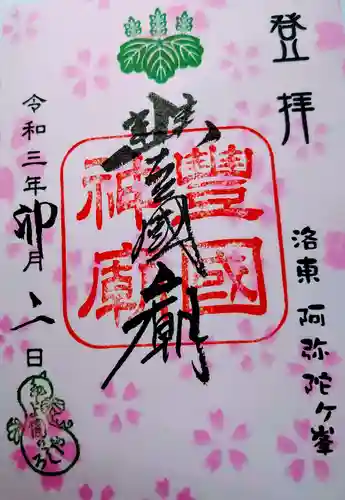 登拝
洛東 阿弥陀ケ峯
豊國廟
豐國
神廟
令和三年卯月
日